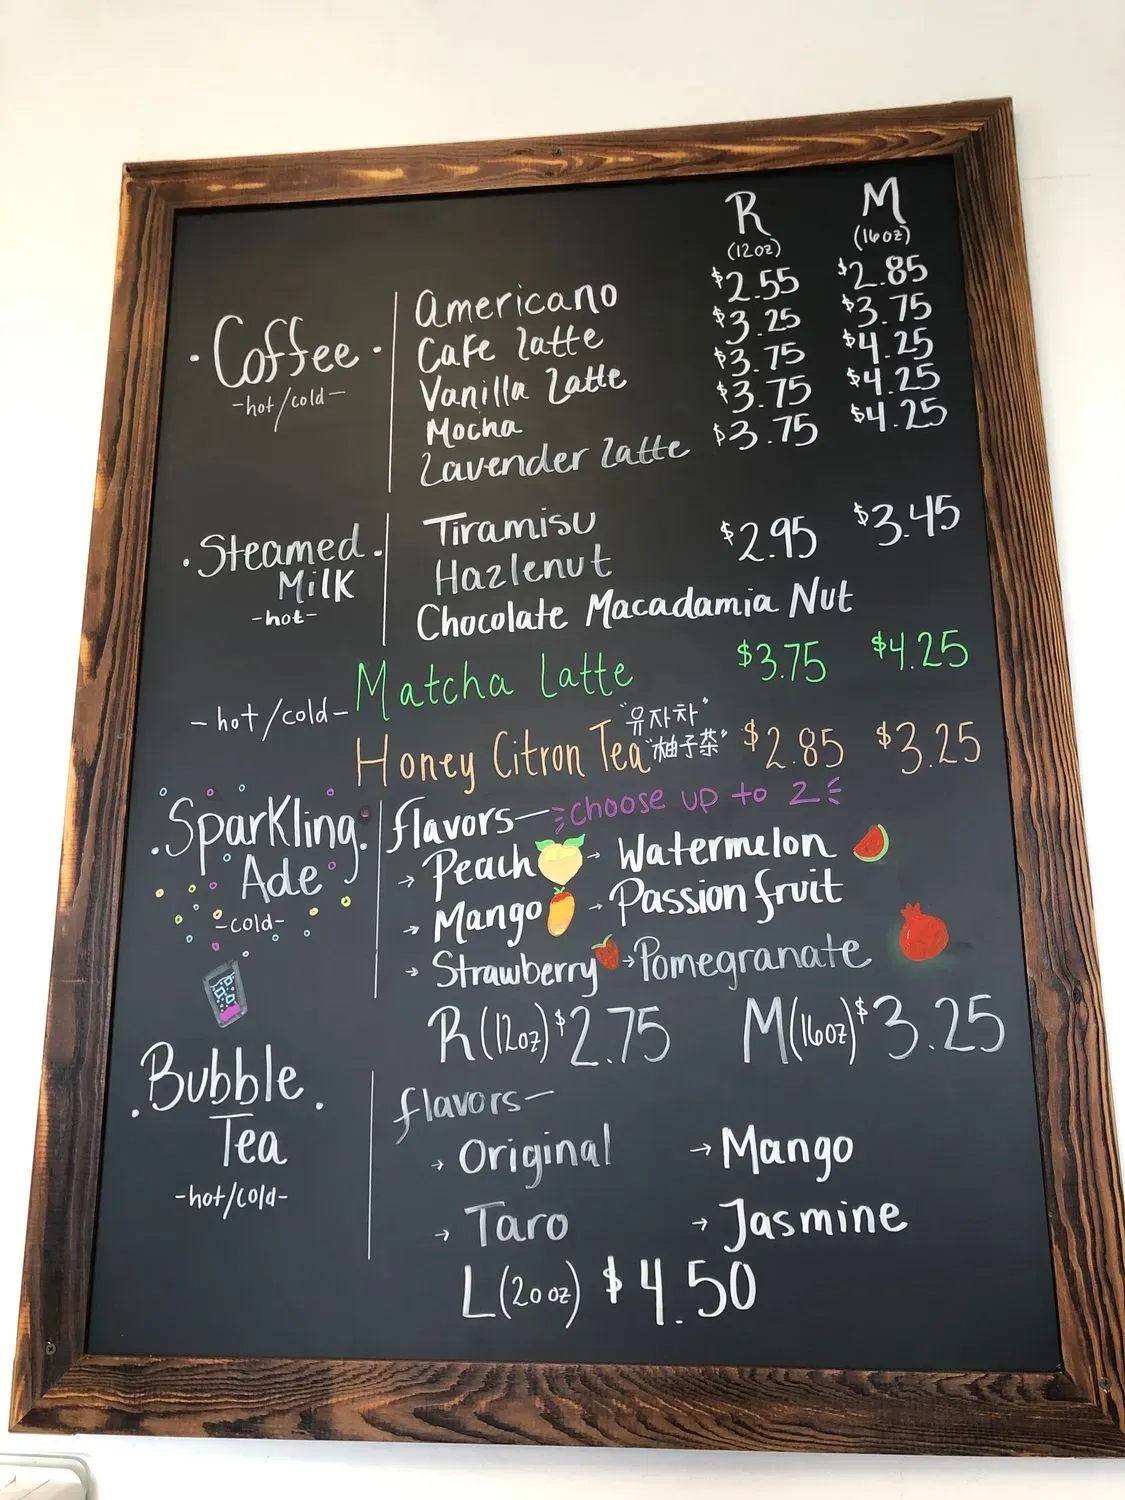 R M
(12oz) (16oz)
·Coffee·
-hot/cold-
Americano $2.55 $2.85
Cafe Latte $3.25 $3.75
Vanilla Latte $3.75 $4.25
Mocha $3.75 $4.25
Lavender Latte $3.75 $4.25
·Steamed·
Milk
-hot-
Tiramisu $2.95 $3.45
Hazlenut
Chocolate Macadamia Nut
-hot/cold-
Matcha Latte $3.75 $4.25
Honey Citron Tea "유자차" "柚子茶" $2.85 $3.25
.Sparkling.
Ade
-cold-
flavors— choose up to 2
→ Peach → Watermelon
→ Mango → Passion fruit
→ Strawberry → Pomegranate
R(12oz) $2.75 M(16oz) $3.25
.Bubble.
Tea
-hot/cold-
flavors—
→ Original → Mango
→ Taro → Jasmine
L(20oz) $4.50